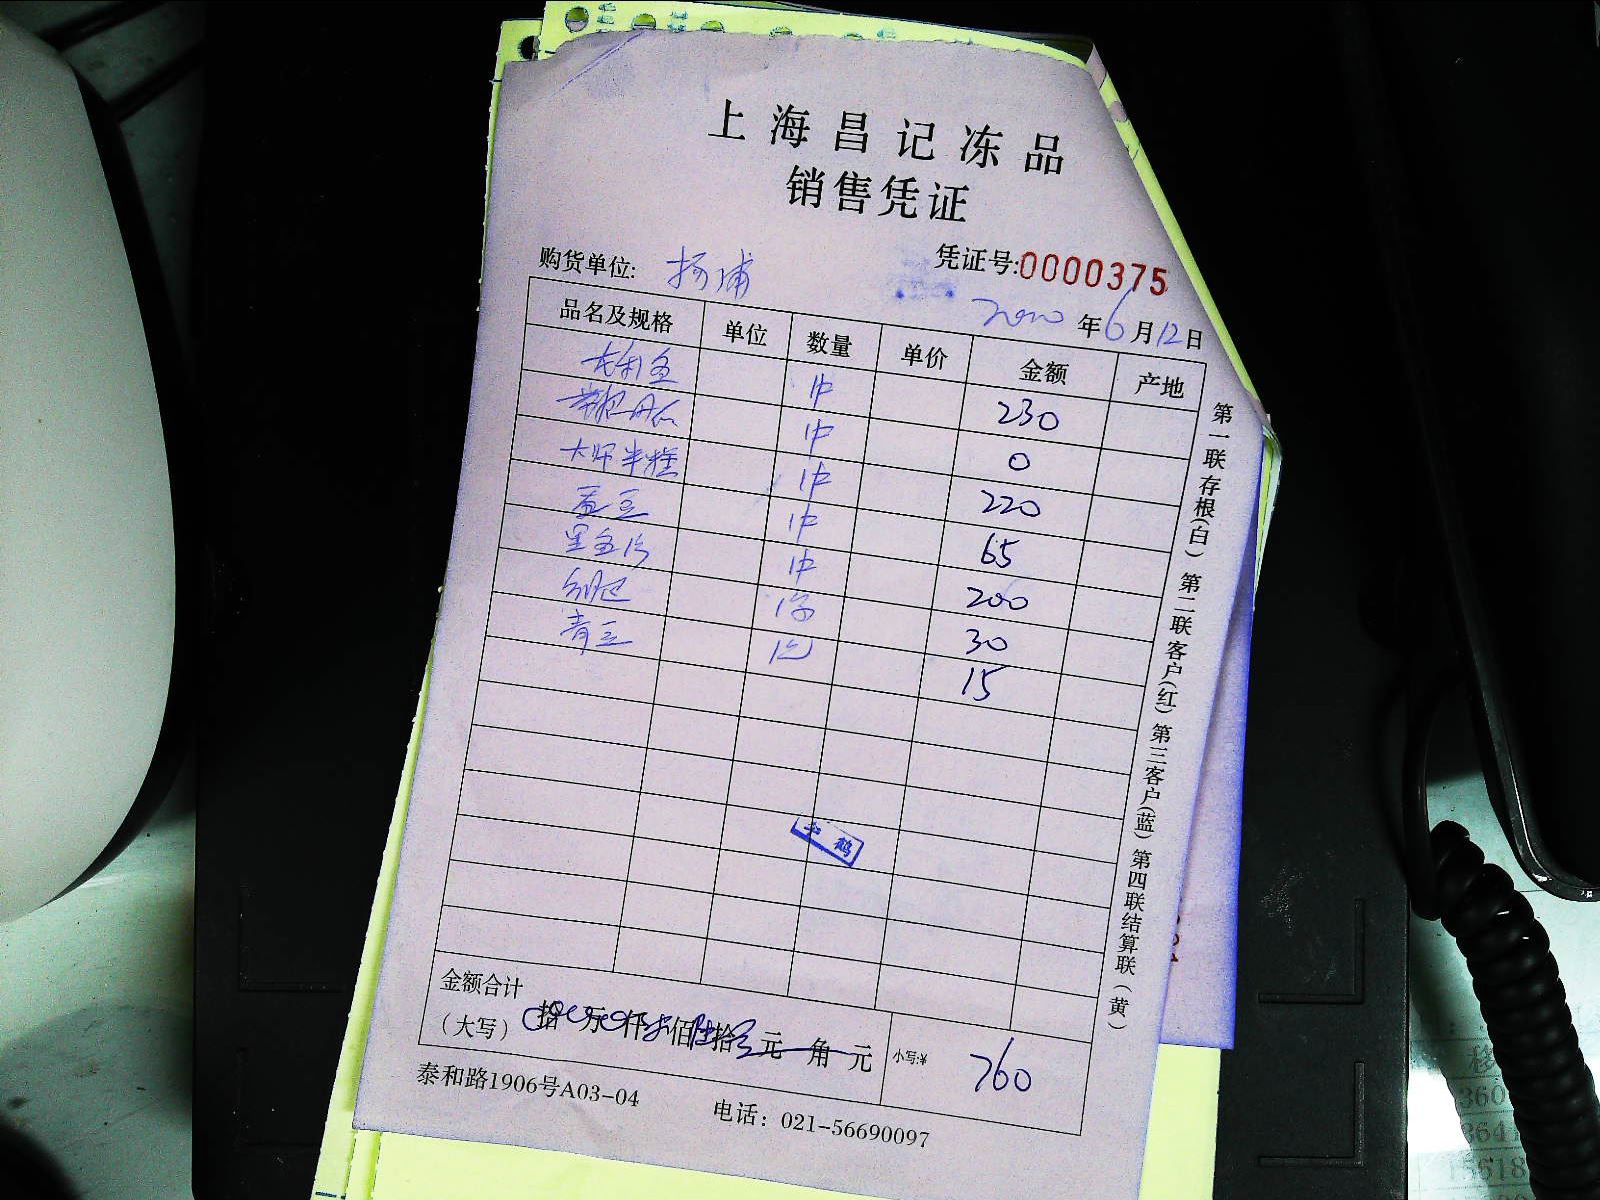 上海昌记冻品
销售凭证
凭证号:0000375
购货单位: 杨浦
2020年6月12日
品名及规格 单位 数量 单价 金额 产地
1件 230
1件 0
大 1件 220
豆 1件 65
黑鱼片 1件 200
1 30
青豆 1包 15
金额合计
(大写) 拾 万 仟 佰 拾 元 角 元 小写:¥ 760
泰和路1906号A03-04 电话: 021-56690097
第一联存根(白) 第二联客户(红) 第三客户(蓝) 第四联结算联(黄)